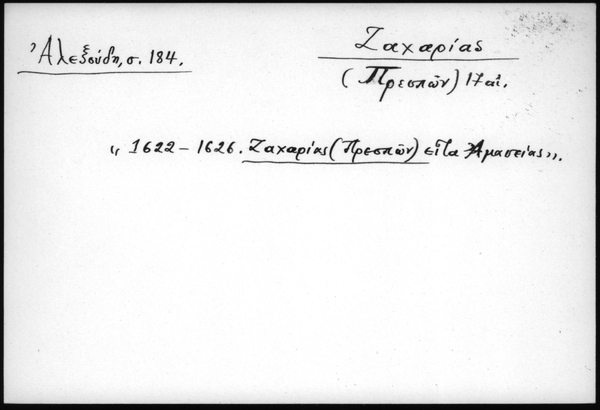 Ἀλεξούδη, σ. 184.
Ζαχαρίας
(Πρεσπῶν) 17 αἰ.
«1622 – 1626. Ζαχαρίας (Πρεσπῶν) εἶτα Ἀμασείας».